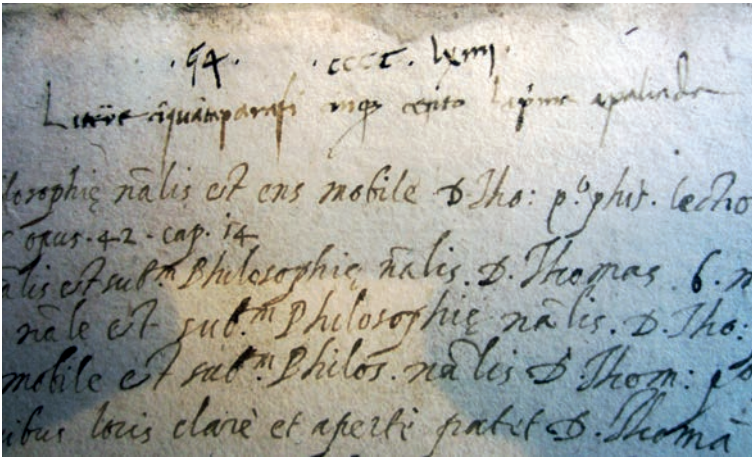 .54. .cccc. lxiiii.
cento
losophię nãlis est ens mobile D. Tho: p.º phis. lectio
opus. 42. cap. 14
ãlis est sub.m Philosophię ñalis. D. Thomas. 6. m
nãle est sub.m Philosophię nãlis. D. Tho:
mobile est sub.m Philos. nãlis D. Thom:
ibus locis clarè et apertè patet D. Thomã